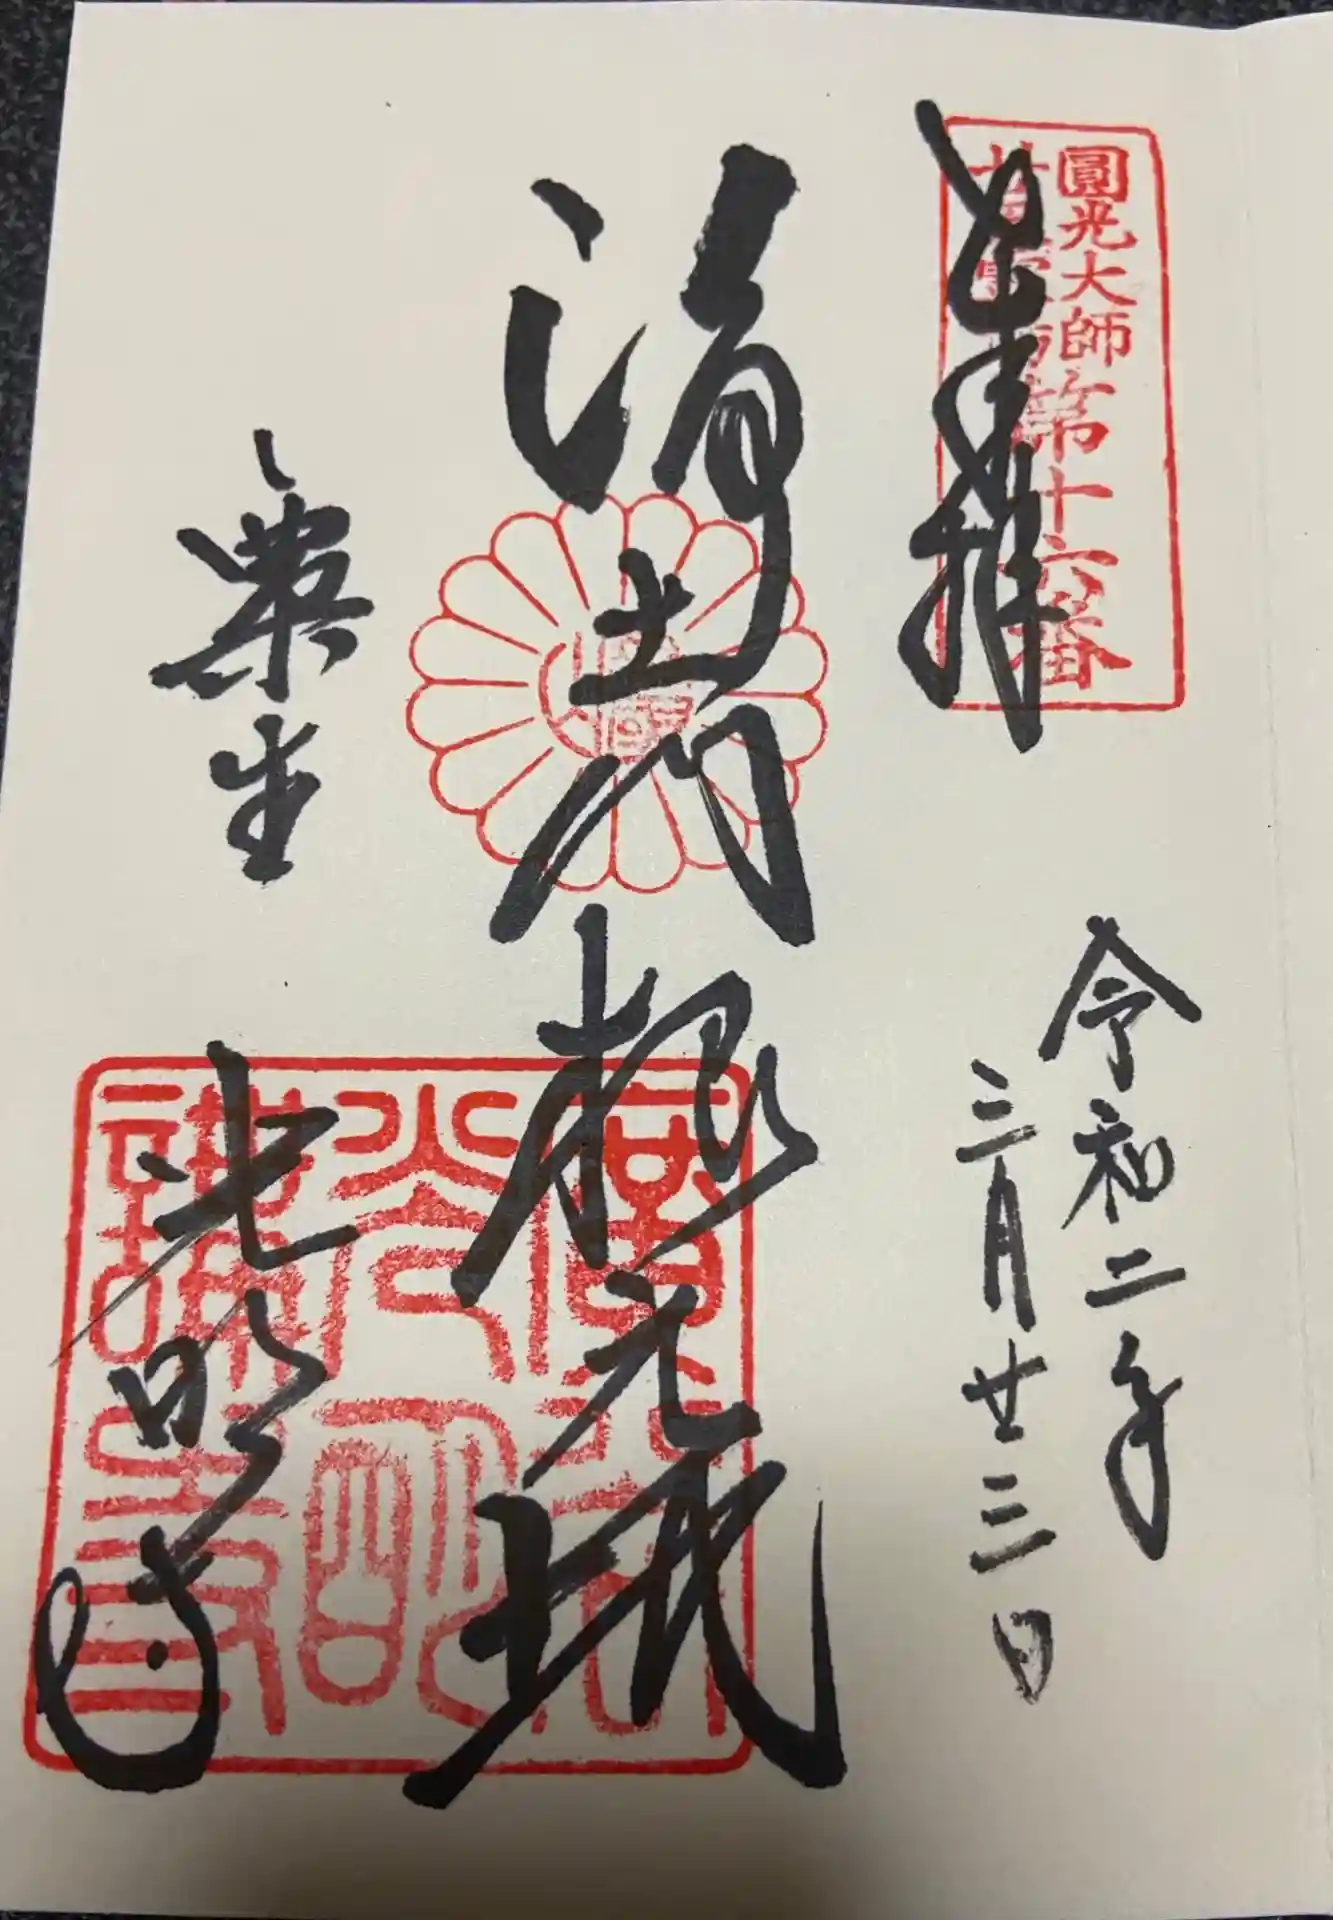 圓光大師
廿五霊場第十六番
奉拝
令和二年
三月廿三日
浄土門根元地
粟生
光明寺